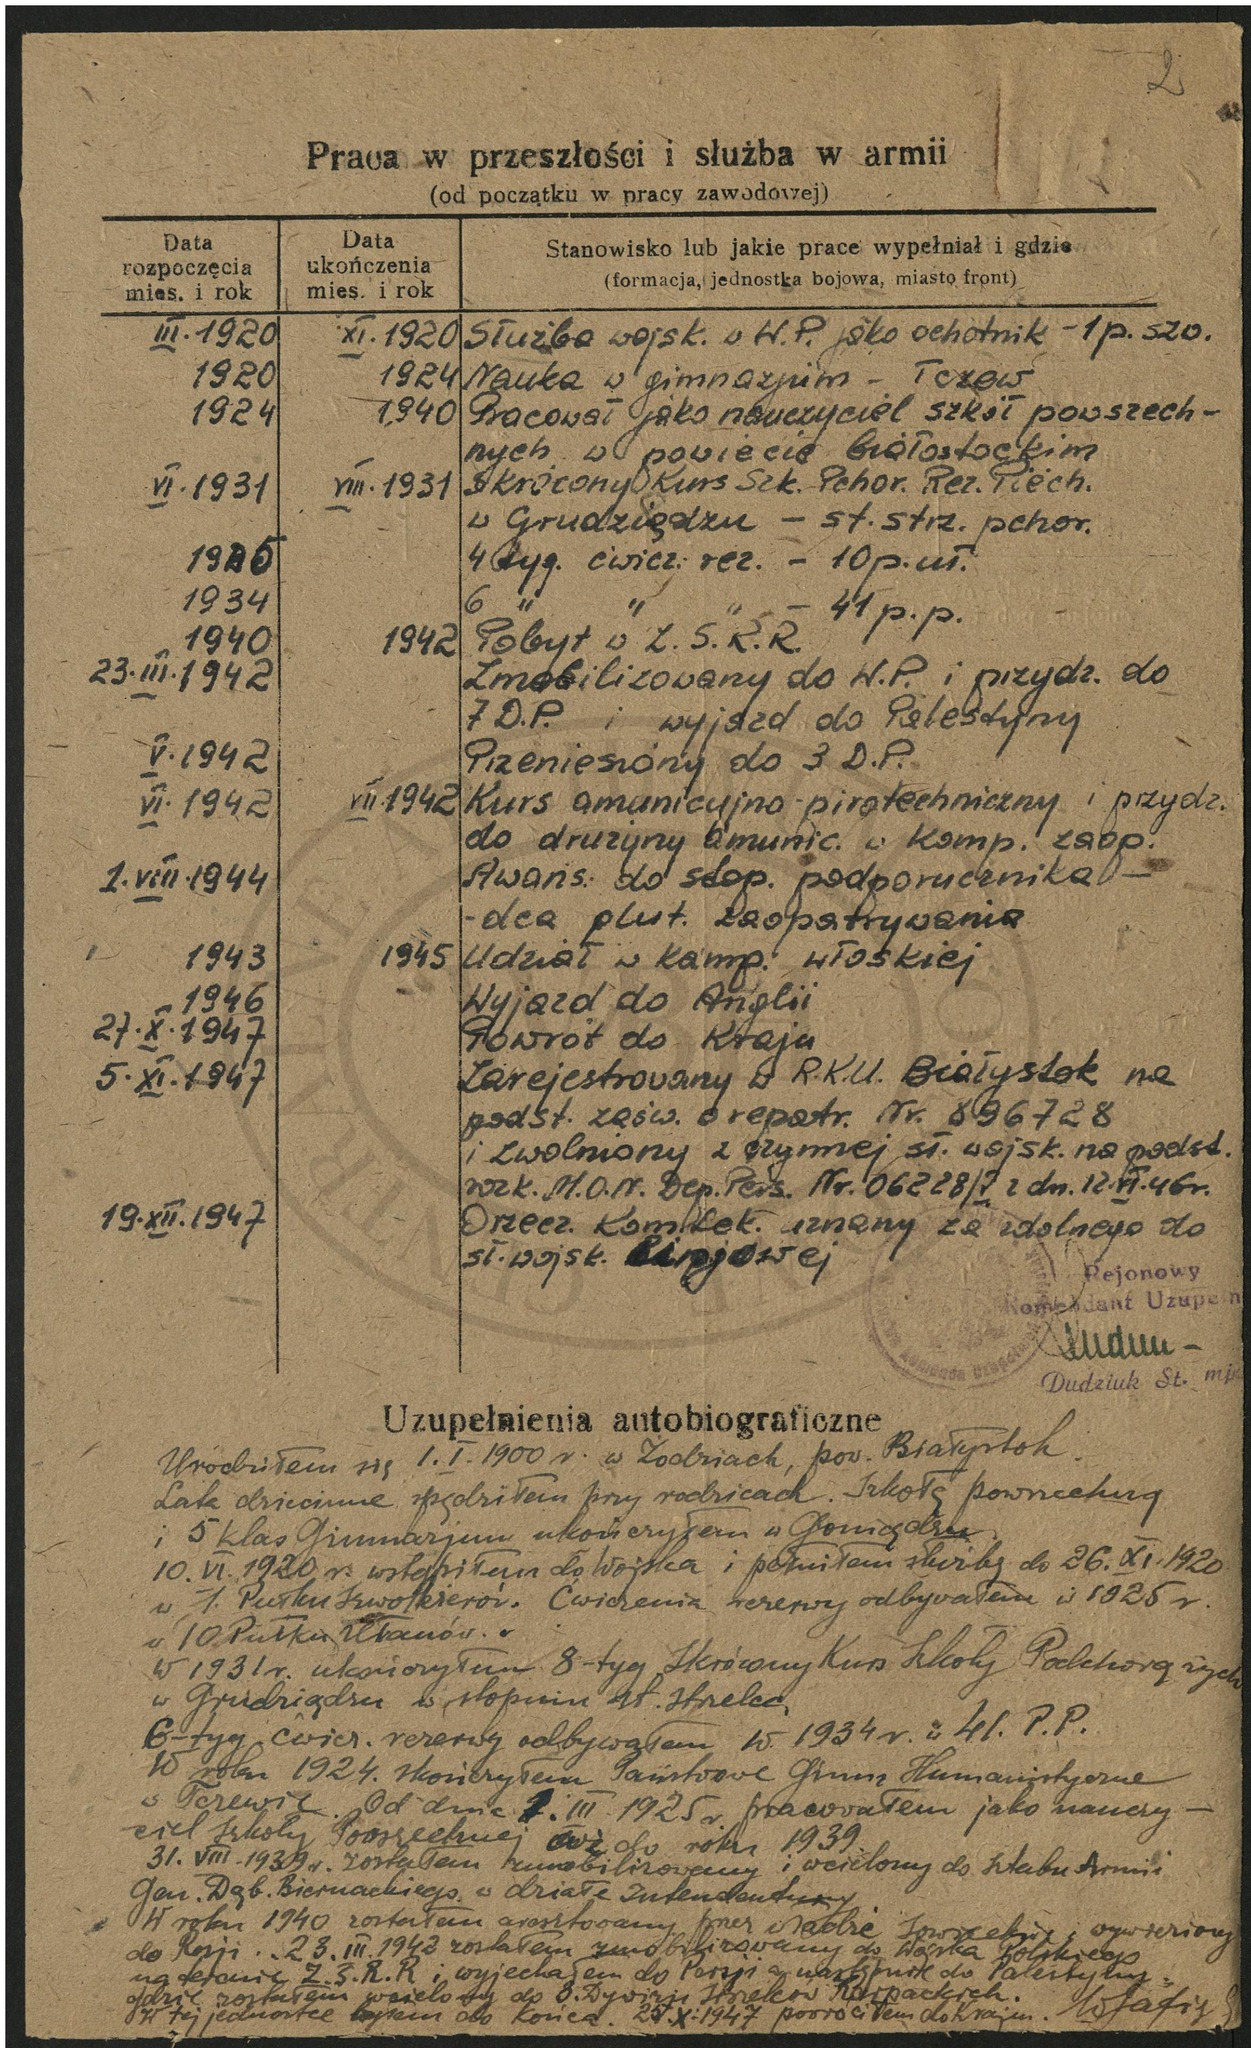 2
Praca w przeszłości i służba w armii
(od początku w pracy zawodowej)
Data rozpoczęcia mies. i rok
Data ukończenia mies. i rok
Stanowisko lub jakie prace wypełniał i gdzie
(formacja, jednostka bojowa, miasto front)
III.1920 XI.1920 Służba wojsk. w W.P. jako ochotnik - 1 p. szw.
1920 1924 Nauka w gimnazjum - Tczew
1924 1940 Pracował jako nauczyciel szkół powszech-
nych w powiecie białostockim
VI.1931 VIII.1931 Skrócony Kurs Szk. Pchor. Rez. Piech.
w Grudziądzu - st. strz. pchor.
1925 4 tyg. ćwicz. rez. - 10 p. uł.
1934 6 " " " - 41 p.p.
1940 1942 Pobyt w Z.S.R.R.
23.III.1942 Zmobilizowany do W.P. i przydz. do
7 D.P. i wyjazd do Palestyny
V.1942 Przeniesiony do 3 D.P.
VI.1942 VII.1942 Kurs amunicyjno-pirotechniczny i przydz.
do drużyny amunic. w komp. zaop.
1.VIII.1944 Awans. do stop. podporucznika -
-dca plut. zaopatrywania
1943 1945 Udział w kamp. włoskiej
1946 Wyjazd do Anglii
27.X.1947 Powrót do Kraju
5.XI.1947 Zarejestrowany w R.K.U. Białystok na
podst. zaśw. o repatr. Nr. 896728
i zwolniony z czynnej sł. wojsk. na podst.
rozk. M.O.N. Dep. Pers. Nr. 06228/I z dn. 12.VI.46r.
19.XII.1947 Orzecz. Kom. Lek. uznany za zdolnego do
sł. wojsk. liniowej
Rejonowy
Komendant Uzupełn
Dudziuk St. mjr
Uzupełnienia autobiograficzne
Urodziłem się 1.I.1900 r. w Zodziach, pow. Białystok.
Lata dziecinne spędziłem przy rodzicach. Szkołę powszechną
i 5 klas Gimnazjum ukończyłem w Goniądzu.
10.VI.1920 r. wstąpiłem do Wojska i pełniłem służbę do 26.XI.1920
w 1. Pułku Szwoleżerów. Ćwiczenia rezerwy odbywałem w 1925 r.
w 10 Pułku Ułanów.
W 1931 r. ukończyłem 8-tyg Skrócony Kurs Szkoły Podchorążych
w Grudziądzu w stopniu st. strzelca.
6-tyg ćwicz. rezerwy odbywałem w 1934 r. w 41. P.P.
W roku 1924. skończyłem Państwowe Gimn. Humanistyczne
w Tczewie. Od dnia 1.III.1925 r. pracowałem jako nauczy-
ciel Szkoły Powszechnej aż do roku 1939.
31.VIII.1939 r. zostałem zmobilizowany i wcielony do sztabu Armii
Gen. Dąb. Biernackiego w dziale Intendentury
W roku 1940 zostałem aresztowany przez władze sowieckie i wywieziony
do Rosji. 23.III.1942 zostałem zmobilizowany do Wojska Polskiego
na terenie Z.S.R.R i wyjechałem do Persji a następnie do Palestyny,
gdzie zostałem wcielony do 3. Dywizji Strzelców Karpackich.
W tej jednostce byłem do końca. 27.X.1947 powróciłem do Kraju.